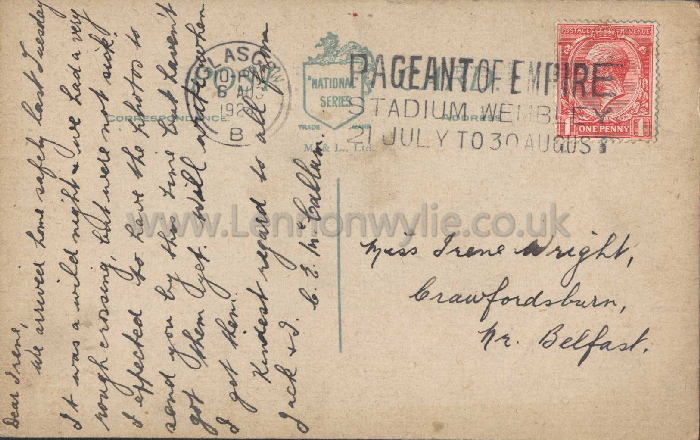 Dear Irene,
We arrived home safely last Tuesday
It was a wild night & we had a very
rough crossing, but were not sick.
I expected to have the photos to
send you by this time but haven't
got them yet. Will write when
I get them.
Kindest regard to all from
Jack & I. C. E. McCallum
POST CARD
CORRESPONDENCE
ADDRESS
"NATIONAL"
SERIES
TRADE MARK
M. & L., Ltd.
GLASGOW
10-PM
6 AUG
192
B
PAGEANT OF EMPIRE
STADIUM WEMBLEY
21 JULY TO 30 AUGUST
POSTAGE REVENUE
1 ONE PENNY 1
www.Lennonwylie.co.uk
Miss Irene Wright,
Crawfordsburn,
Nr. Belfast.